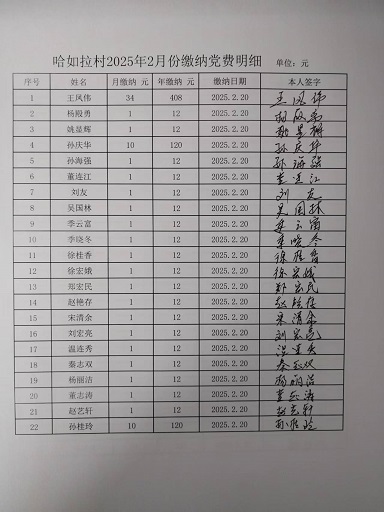 哈如拉村2025年2月份缴纳党费明细 单位：元
序号 姓名 月缴纳 元 年缴纳 元 缴纳日期 本人签字
1 王凤伟 34 408 2025.2.20 王凤伟
2 杨殿勇 1 12 2025.2.20
3 姚显辉 1 12 2025.2.20
4 孙庆华 10 120 2025.2.20 孙庆华
5 孙海强 1 12 2025.2.20 孙海强
6 董连江 1 12 2025.2.20 董连江
7 刘友 1 12 2025.2.20 刘友
8 吴国林 1 12 2025.2.20 吴国林
9 季云富 1 12 2025.2.20 季云富
10 李晓冬 1 12 2025.2.20 李晓冬
11 徐桂香 1 12 2025.2.20 徐桂香
12 徐宏娥 1 12 2025.2.20 徐宏娥
13 郑宏民 1 12 2025.2.20 郑宏民
14 赵艳存 1 12 2025.2.20
15 宋清余 1 12 2025.2.20 宋清余
16 刘宏亮 1 12 2025.2.20 刘宏亮
17 温连秀 1 12 2025.2.20 温连秀
18 秦志双 1 12 2025.2.20 秦志双
19 杨丽洁 1 12 2025.2.20 杨丽洁
20 董志涛 1 12 2025.2.20 董志涛
21 赵艺轩 1 12 2025.2.20 赵艺轩
22 孙桂玲 10 120 2025.2.20 孙桂玲